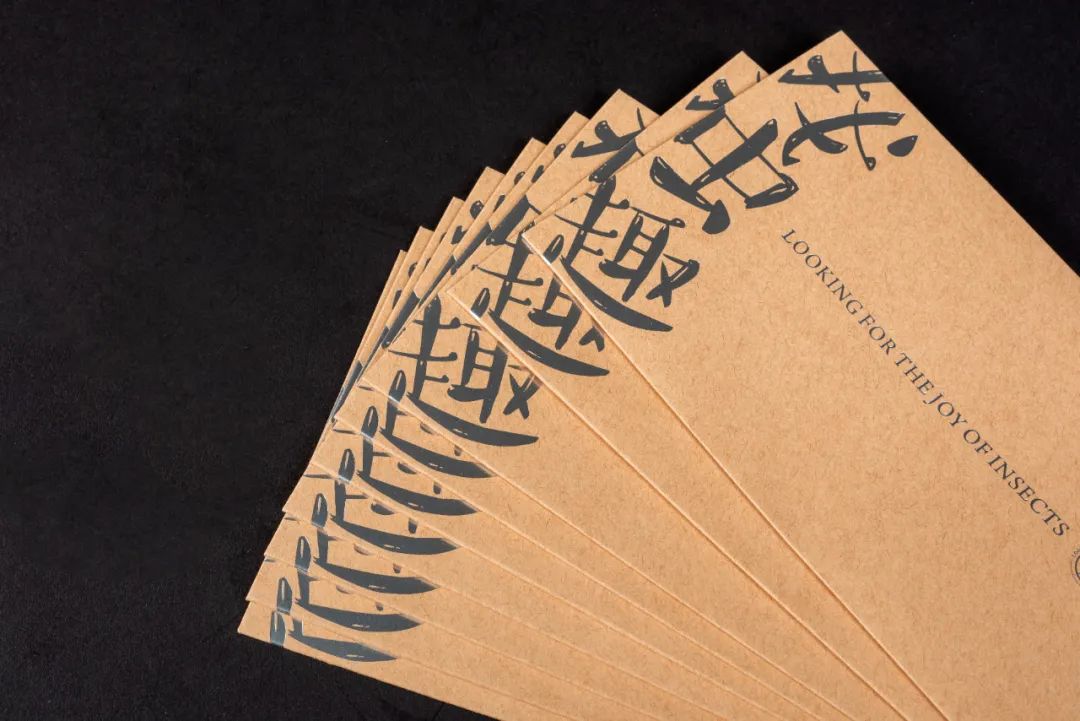 找虫趣
LOOKING FOR THE JOY OF INSECTS